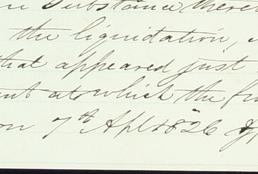 Substance there
the liquidation,
that appeared just
at which the
on 7th Apl 1826